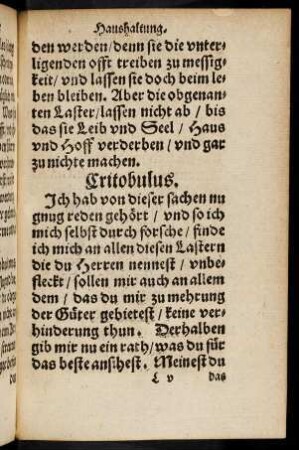 Haushaltung.
den werden/denn sie die vnter-
ligenden offt treiben zu messig-
keit/vnd lassen sie doch beim le-
ben bleiben. Aber die obgenan-
ten Laster/lassen nicht ab/bis
das sie Leib vnd Seel/Haus
vnd Hoff verderben/vnd gar
zu nichte machen.
Critobulus.
Ich hab von dieser sachen nu
gnug reden gehört/vnd so ich
mich selbst durch forsche/finde
ich mich an allen diesen Lastern
die du Herren nennest/vnbe-
fleckt/sollen mir auch an allem
dem/das du mir zu mehrung
der Güter gebietest/keine ver-
hinderung thun. Derhalben
gib mir nu ein rath/was du für
das beste ansihest. Meinest du
L v das